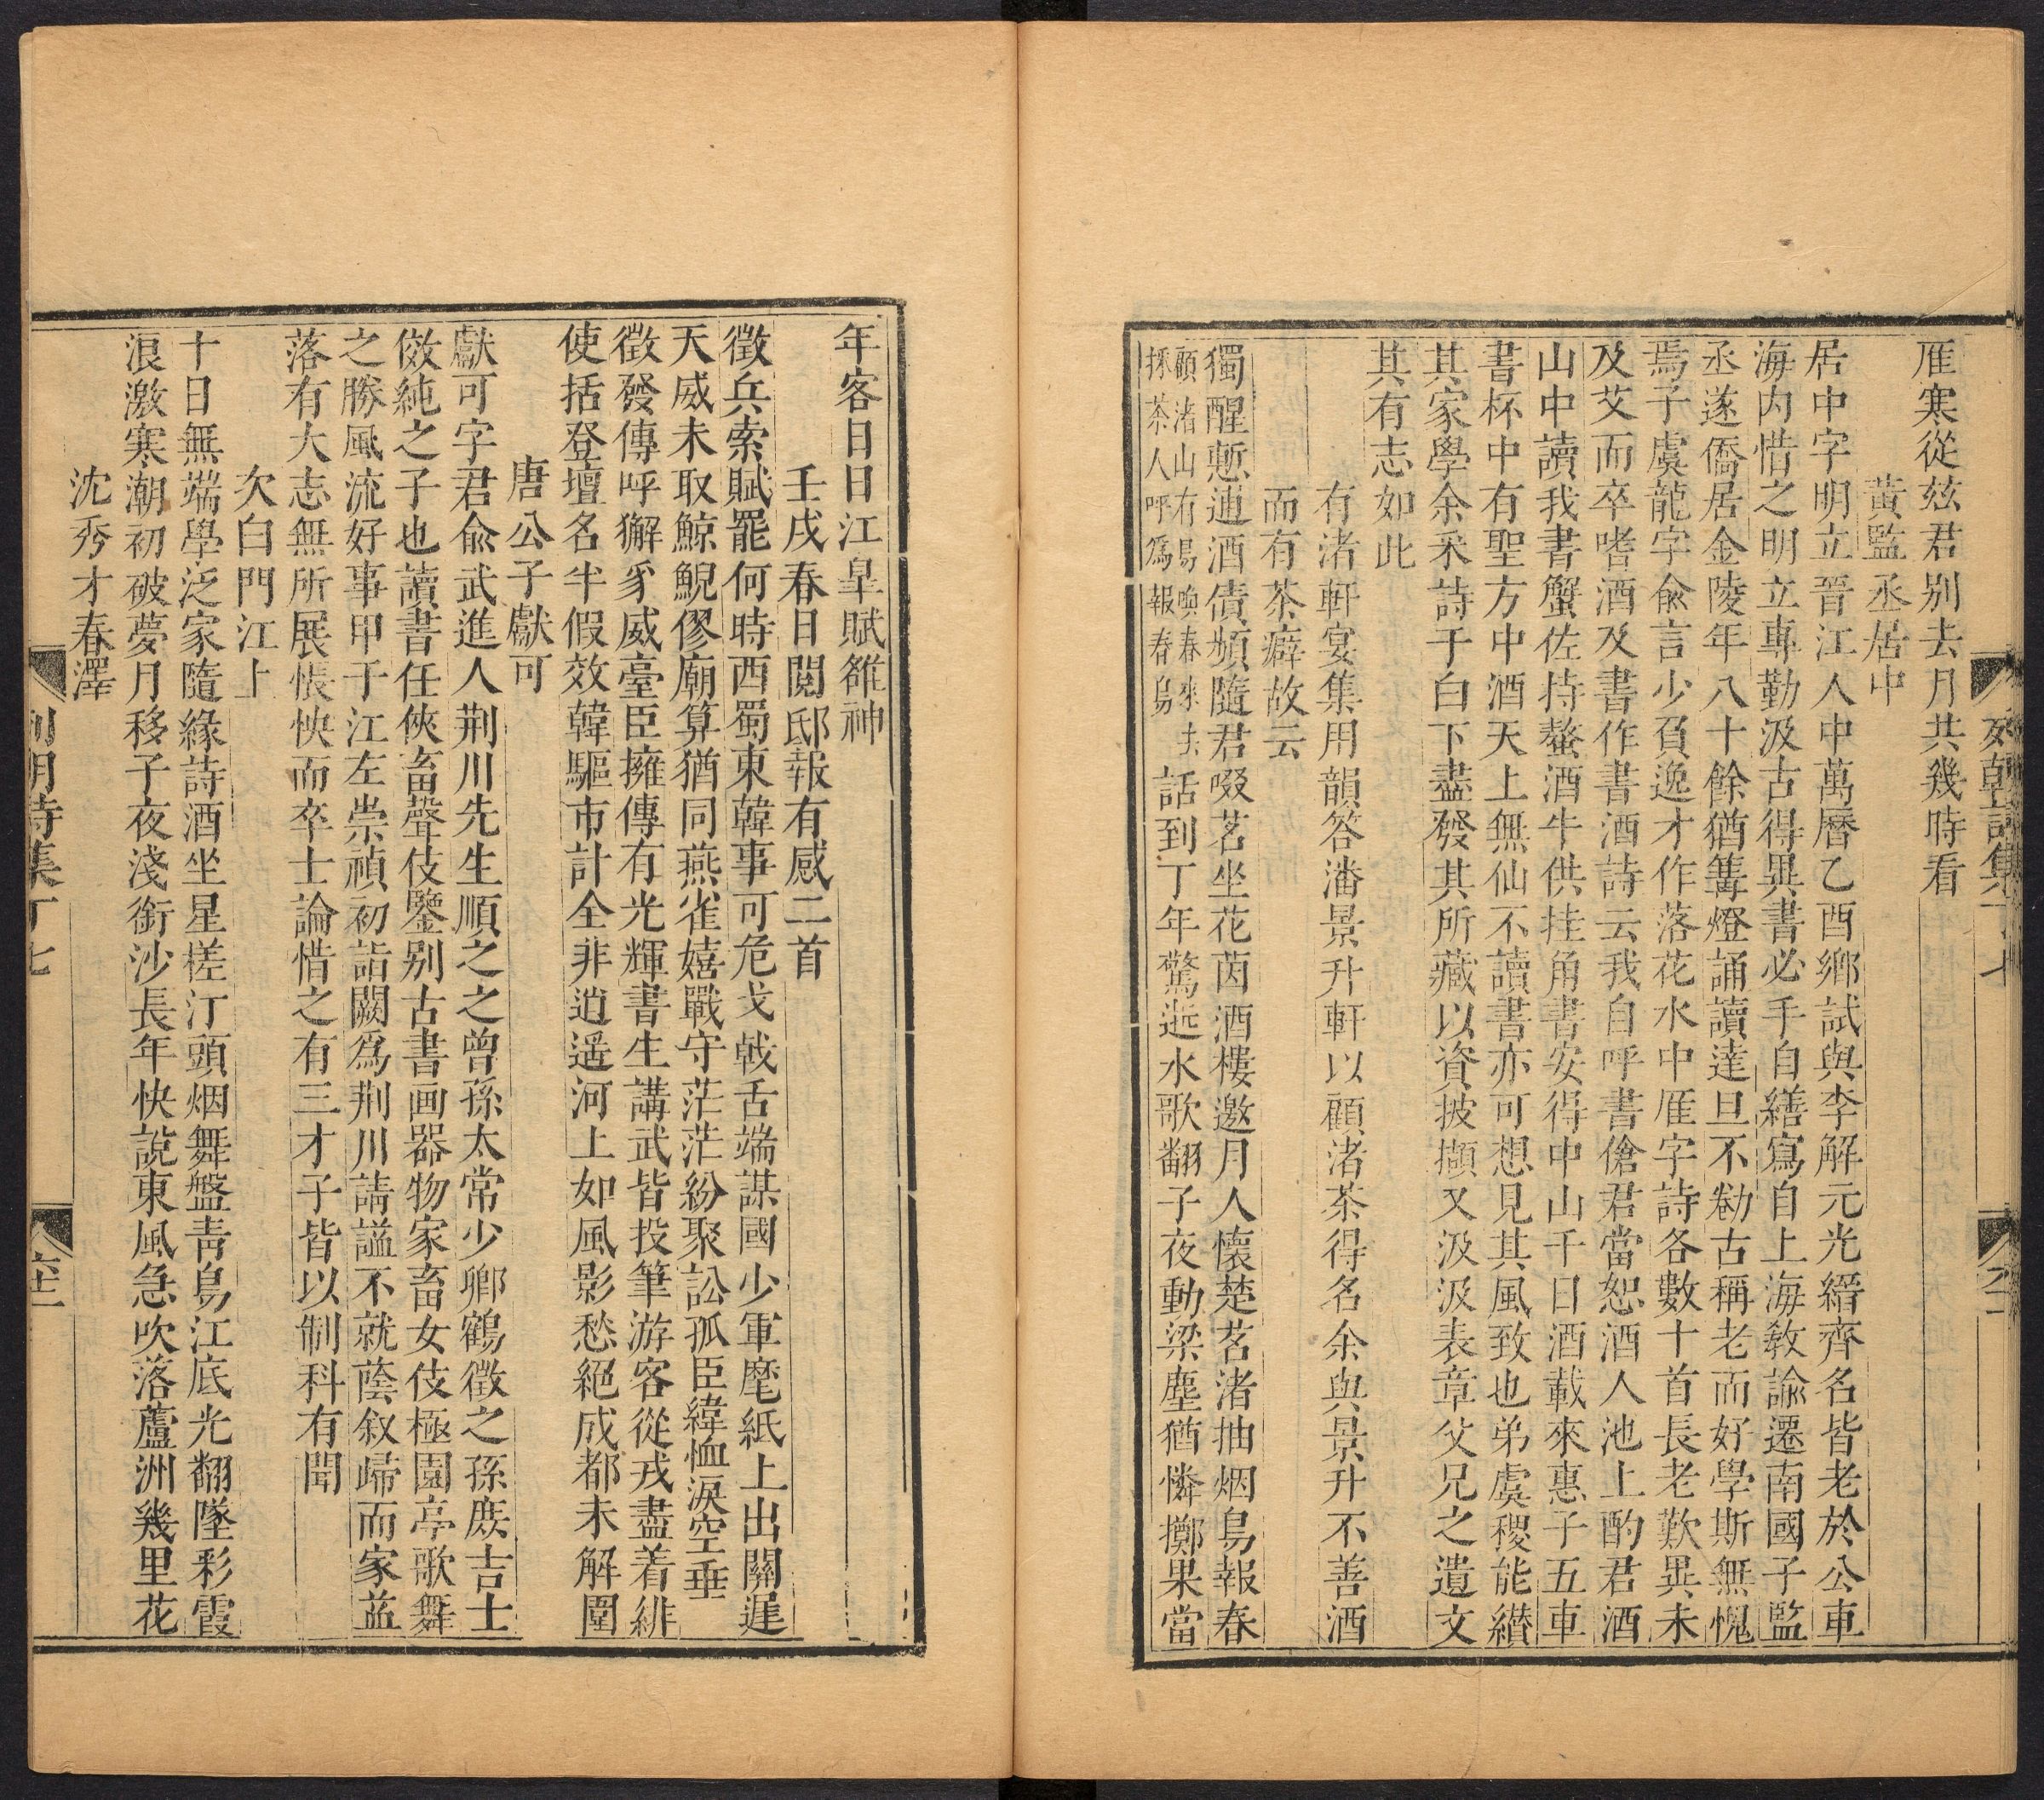 雁寒從兹君别去月共幾時看
黃監丞居中
居中字明立晉江人中萬曆乙酉鄉試與李解元光縉齊名皆老於公車
海内惜之明立專勤汲古得異書必手自繕寫自上海教諭遷南國子監
丞遂僑居金陵年八十餘猶篝燈誦讀達旦不勌古稱老而好學斯無愧
焉子虞龍字俞言少負逸才作落花水中雁字詩各數十首長老歎異未
及艾而卒嗜酒及書作書酒詩云我自呼書傖君當恕酒人池上酌君酒
山中讀我書蟹佐持螯酒牛供挂角書安得中山千日酒載來惠子五車
書杯中有聖方中酒天上無仙不讀書亦可想見其風致也弟虞稷能纘
其家學余采詩于白下盡發其所藏以資披擷又汲汲表章父兄之遺文
其有志如此
有渚軒宴集用韻答潘景升軒以顧渚茶得名余與景升不善酒
而有茶癖故云
獨醒慙逋酒債頻隨君啜茗坐花茵酒樓邀月人懷楚茗渚抽烟鳥報春
顧渚山有鳥喚春來去
採茶人呼爲報春鳥
話到丁年驚逝水歌翻子夜動梁塵猶憐擲果當
年客日日江皐賦雒神
壬戌春日閱邸報有感二首
徵兵索賦罷何時西蜀東韓事可危戈戟舌端謀國少軍麾紙上出關遲
天威未取鯨鯢僇廟算猶同燕雀嬉戰守茫茫紛聚訟孤臣緯恤淚空垂
徵發傳呼獬豸威臺臣擁傳有光輝書生講武皆投筆游客從戎盡着緋
使括登壇名半假效韓驅市計全非逍遥河上如風影愁絕成都未解圍
唐公子獻可
獻可字君俞武進人荆川先生順之之曾孫太常少卿鶴徵之孫庶吉士
傚純之子也讀書任俠畜聲伎鑒别古書画器物家畜女伎極園亭歌舞
之勝風流好事甲于江左崇禎初詣闕爲荆川請謚不就蔭敘歸而家益
落有大志無所展悵怏而卒士論惜之有三才子皆以制科有聞
次白門江上
十日無端學泛家隨緣詩酒坐星槎汀頭烟舞盤靑鳥江底光翻墜彩霞
浪激寒潮初破夢月移子夜淺銜沙長年快說東風急吹落蘆洲幾里花
沈秀才春澤
列朝詩集丁七